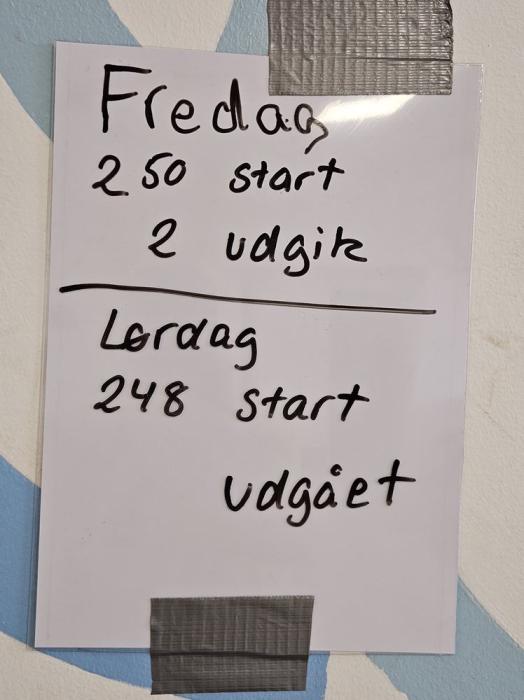 Fredag
250 start
2 udgik
Lørdag
248 start
udgået